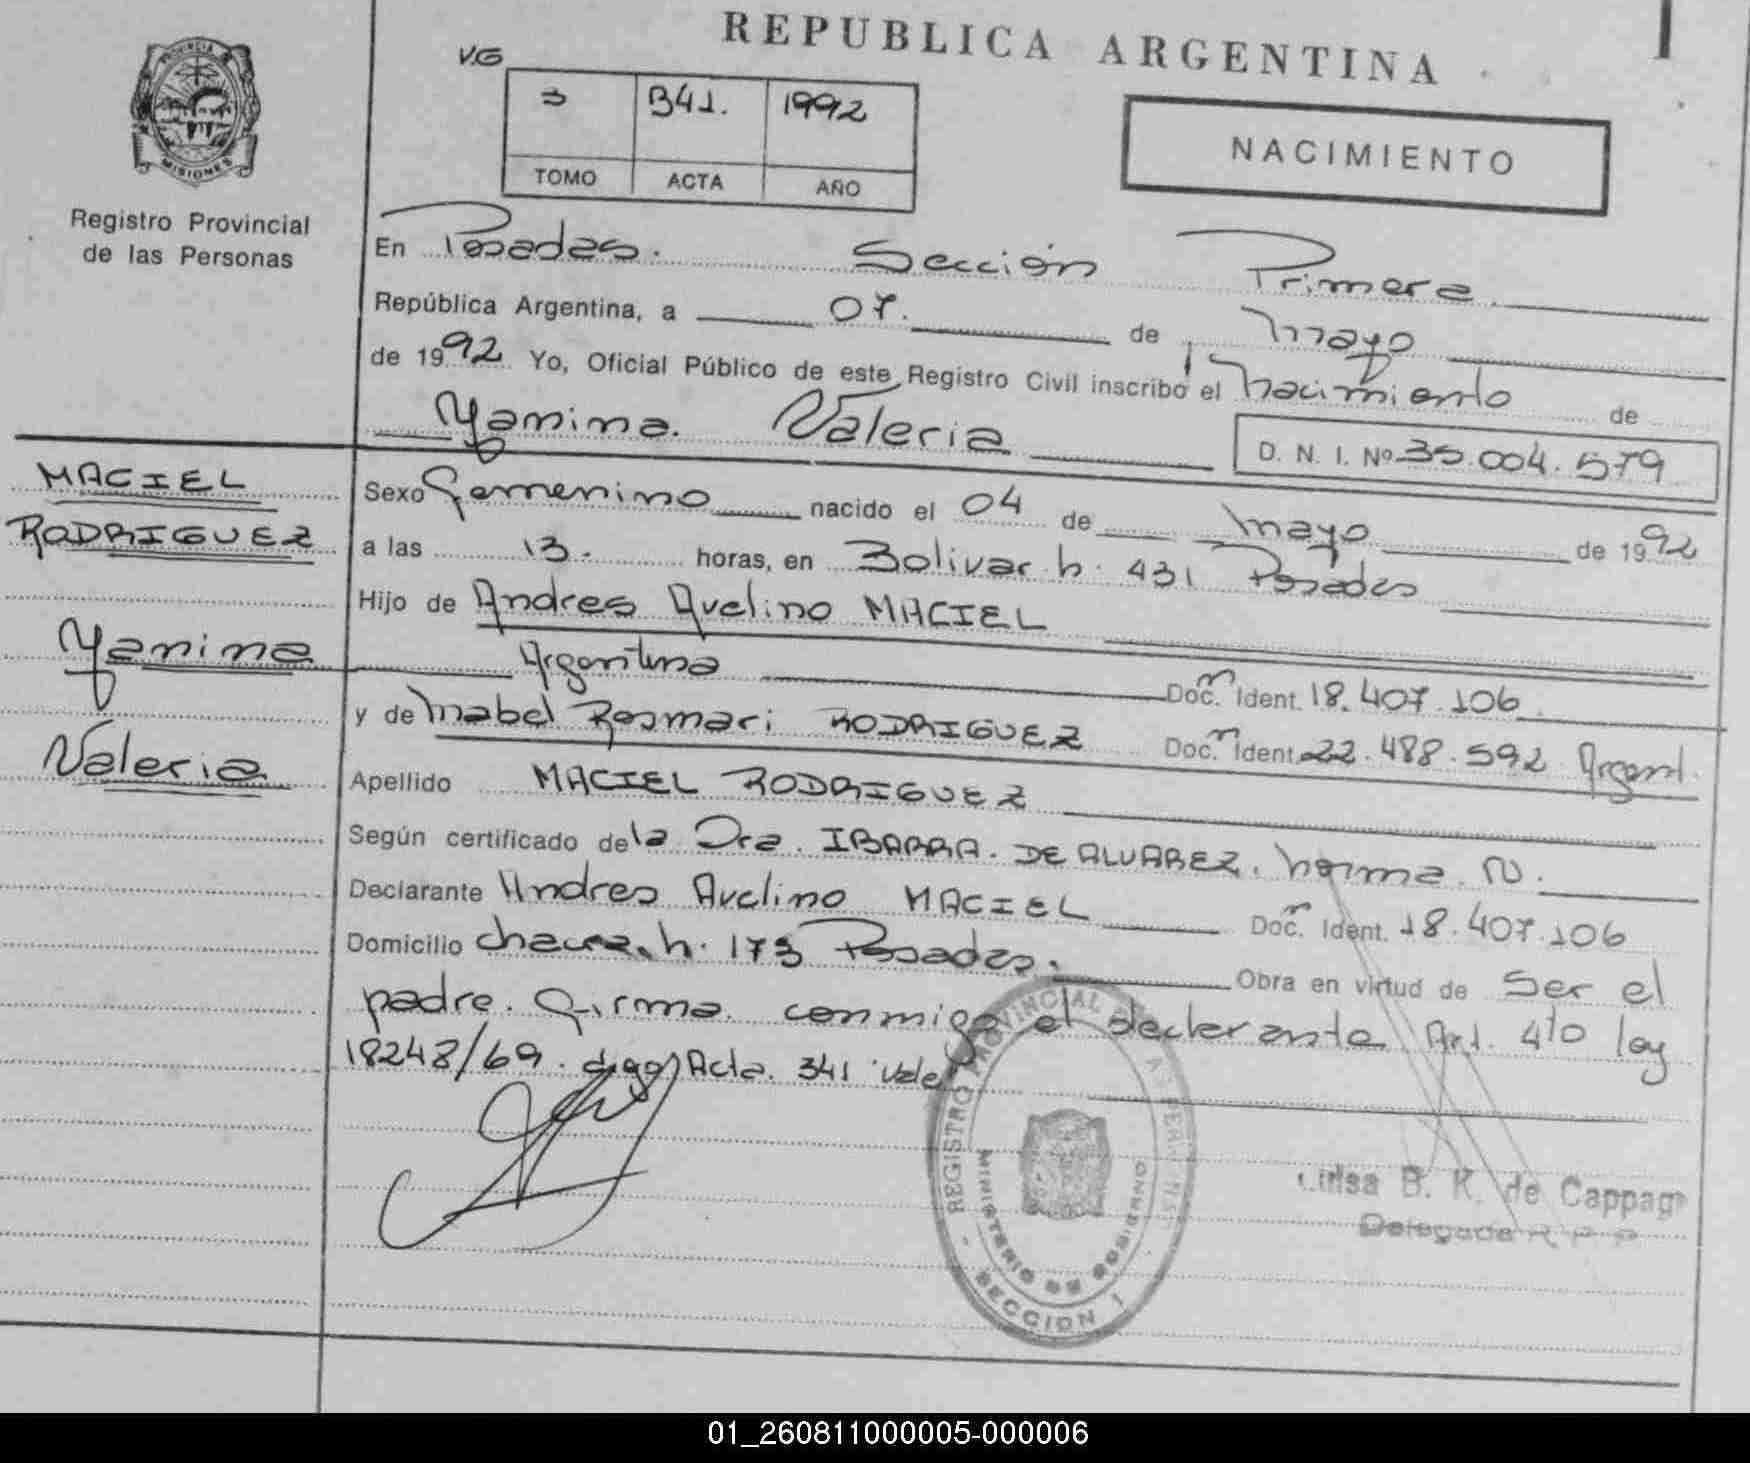 REPUBLICA ARGENTINA
PROVINCIA
MISIONES
Registro Provincial
de las Personas
V.G
341. 1992
TOMO ACTA AÑO
NACIMIENTO
En Posadas. Sección Primera
República Argentina, a 07. de mayo
de 1992 Yo, Oficial Público de este Registro Civil inscribo el nacimiento de
Yanina. Valeria
D. N. I. Nº 35.004.579
MACIEL
RODRIGUEZ
Yanina
Valeria
Sexo Femenino nacido el 04 de mayo de 1992
a las 13. horas, en Bolivar h. 431 Posadas
Hijo de Andres Avelino MACIEL
Argentino Doc. Ident. 18.407.106
y de Mabel Rosmari RODRIGUEZ Doc. Ident. 22.488.592 Argent.
Apellido MACIEL RODRIGUEZ
Según certificado de la Dra. IBARRA. DE ALVAREZ. Norma. N.
Declarante Andres Avelino MACIEL Doc. Ident. 18.407.106
Domicilio chacra. h. 173 Posadas. Obra en virtud de ser el
padre. Firma conmigo el declarante Art. 4to ley
18248/69. digo Acta. 341 vale
REGISTRO PROVINCIAL
MINISTERIO DE GOBIERNO
SECCION 1
B. K. de Cappag
Delegada R P P
01_260811000005-000006